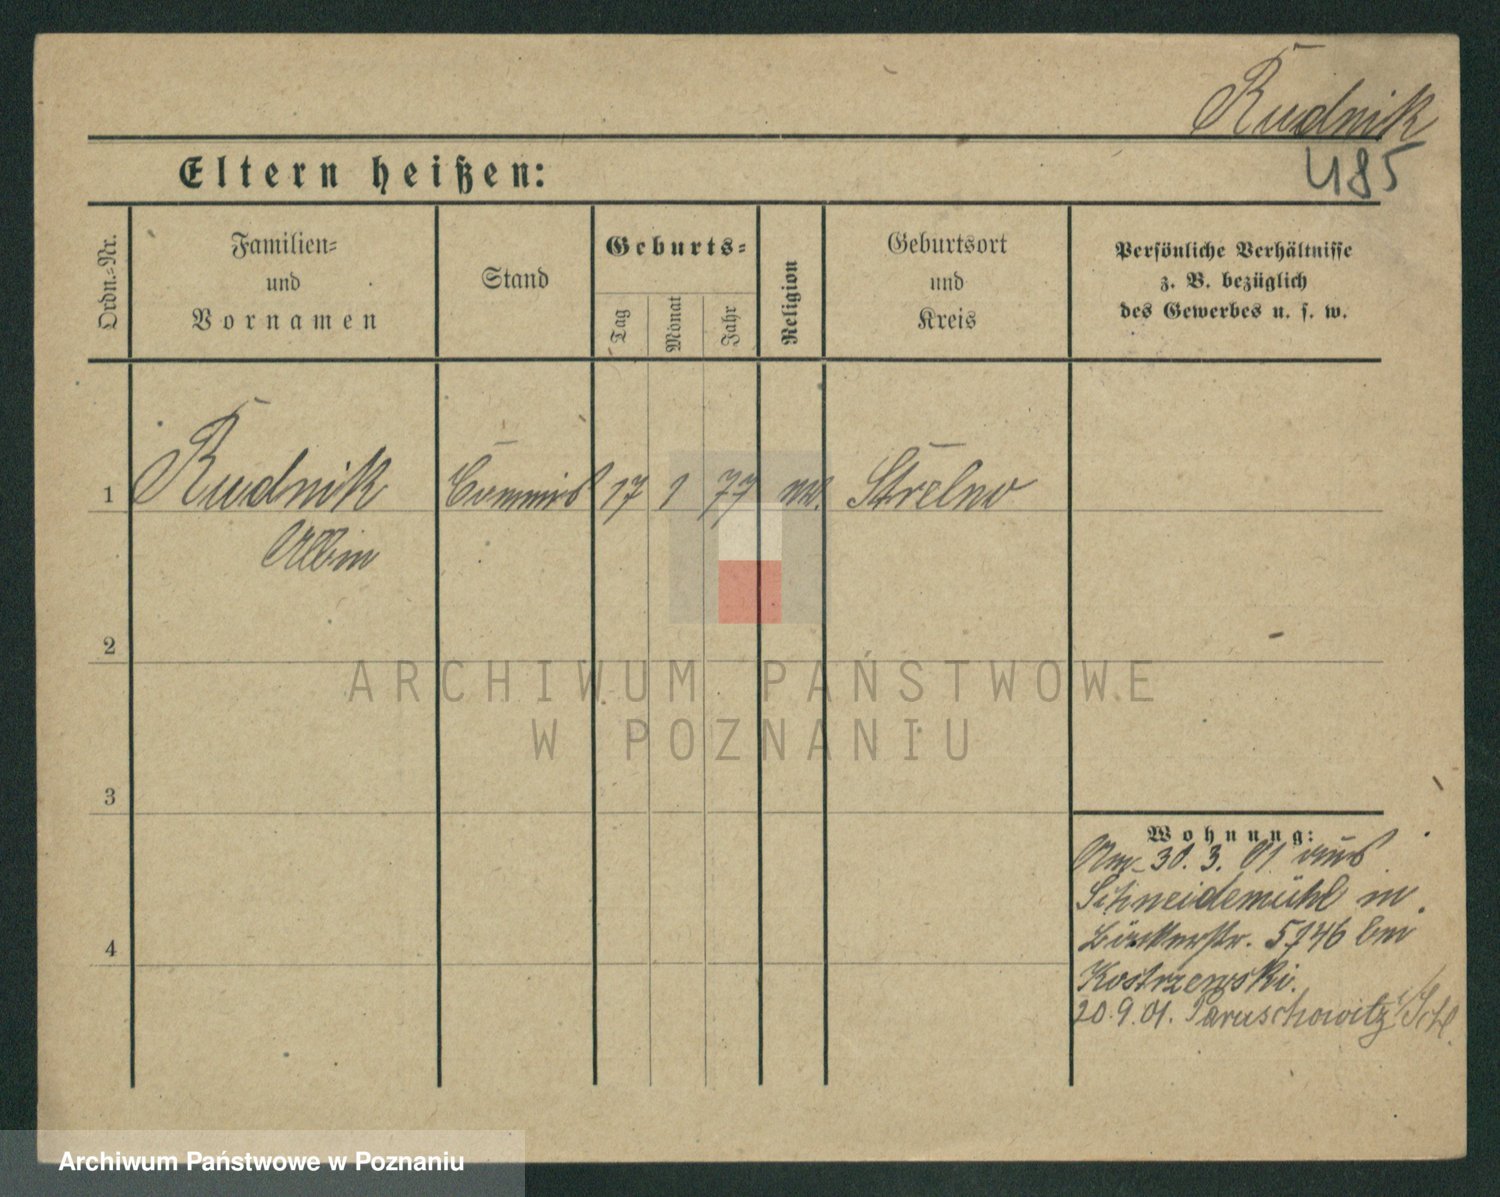 Rudnik
485
Eltern heißen:
Ordn.-Nr.
Familien-
und
Vornamen
Stand
Geburts-
Tag
Monat
Jahr
Religion
Geburtsort
und
Kreis
Persönliche Verhältnisse
z. B. bezüglich
des Gewerbes u. s. w.
1 Rudnik Commis 17 1 77 Strelno
Albin
2
ARCHIWUM PAŃSTWOWE
W POZNANIU
3
Wohnung:
Am 30.3.01 aus
Schneidemühl in
Bäckerstr. 5/46 bei
4
Kostrzewski.
20.9.01. Paruschowitz i/Schl.
Archiwum Państwowe w Poznaniu